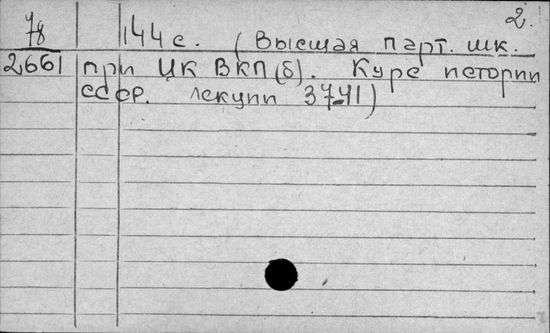 2.
78 144 с. (Высшая парт. шк.
2661 при ЦК ВКП(б). Курс истории
СССР. Лекции 37-41)